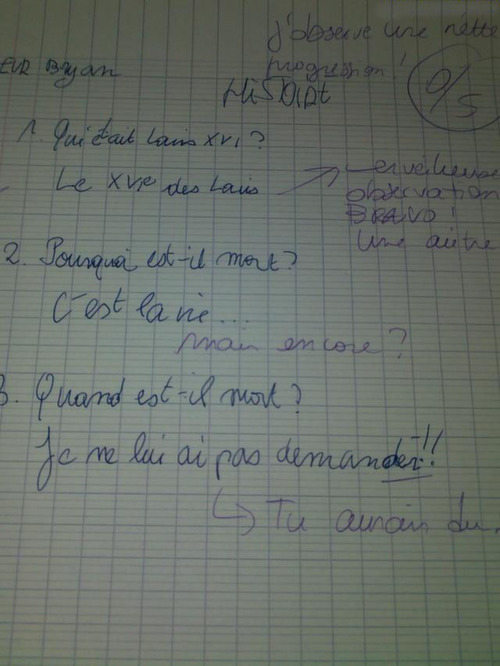 j'observe une nette
progression!
EUR Bryan
0/5
HiSTOIRE
1. Qui était Louis XVI?
Le XVIe des Louis
Merveilleuse
observation
BRAVO!
Une autre
2. Pourquoi est-il mort?
C'est la vie...
mais encore?
3. Quand est-il mort?
Je ne lui ai pas demander!!
Tu aurais du.